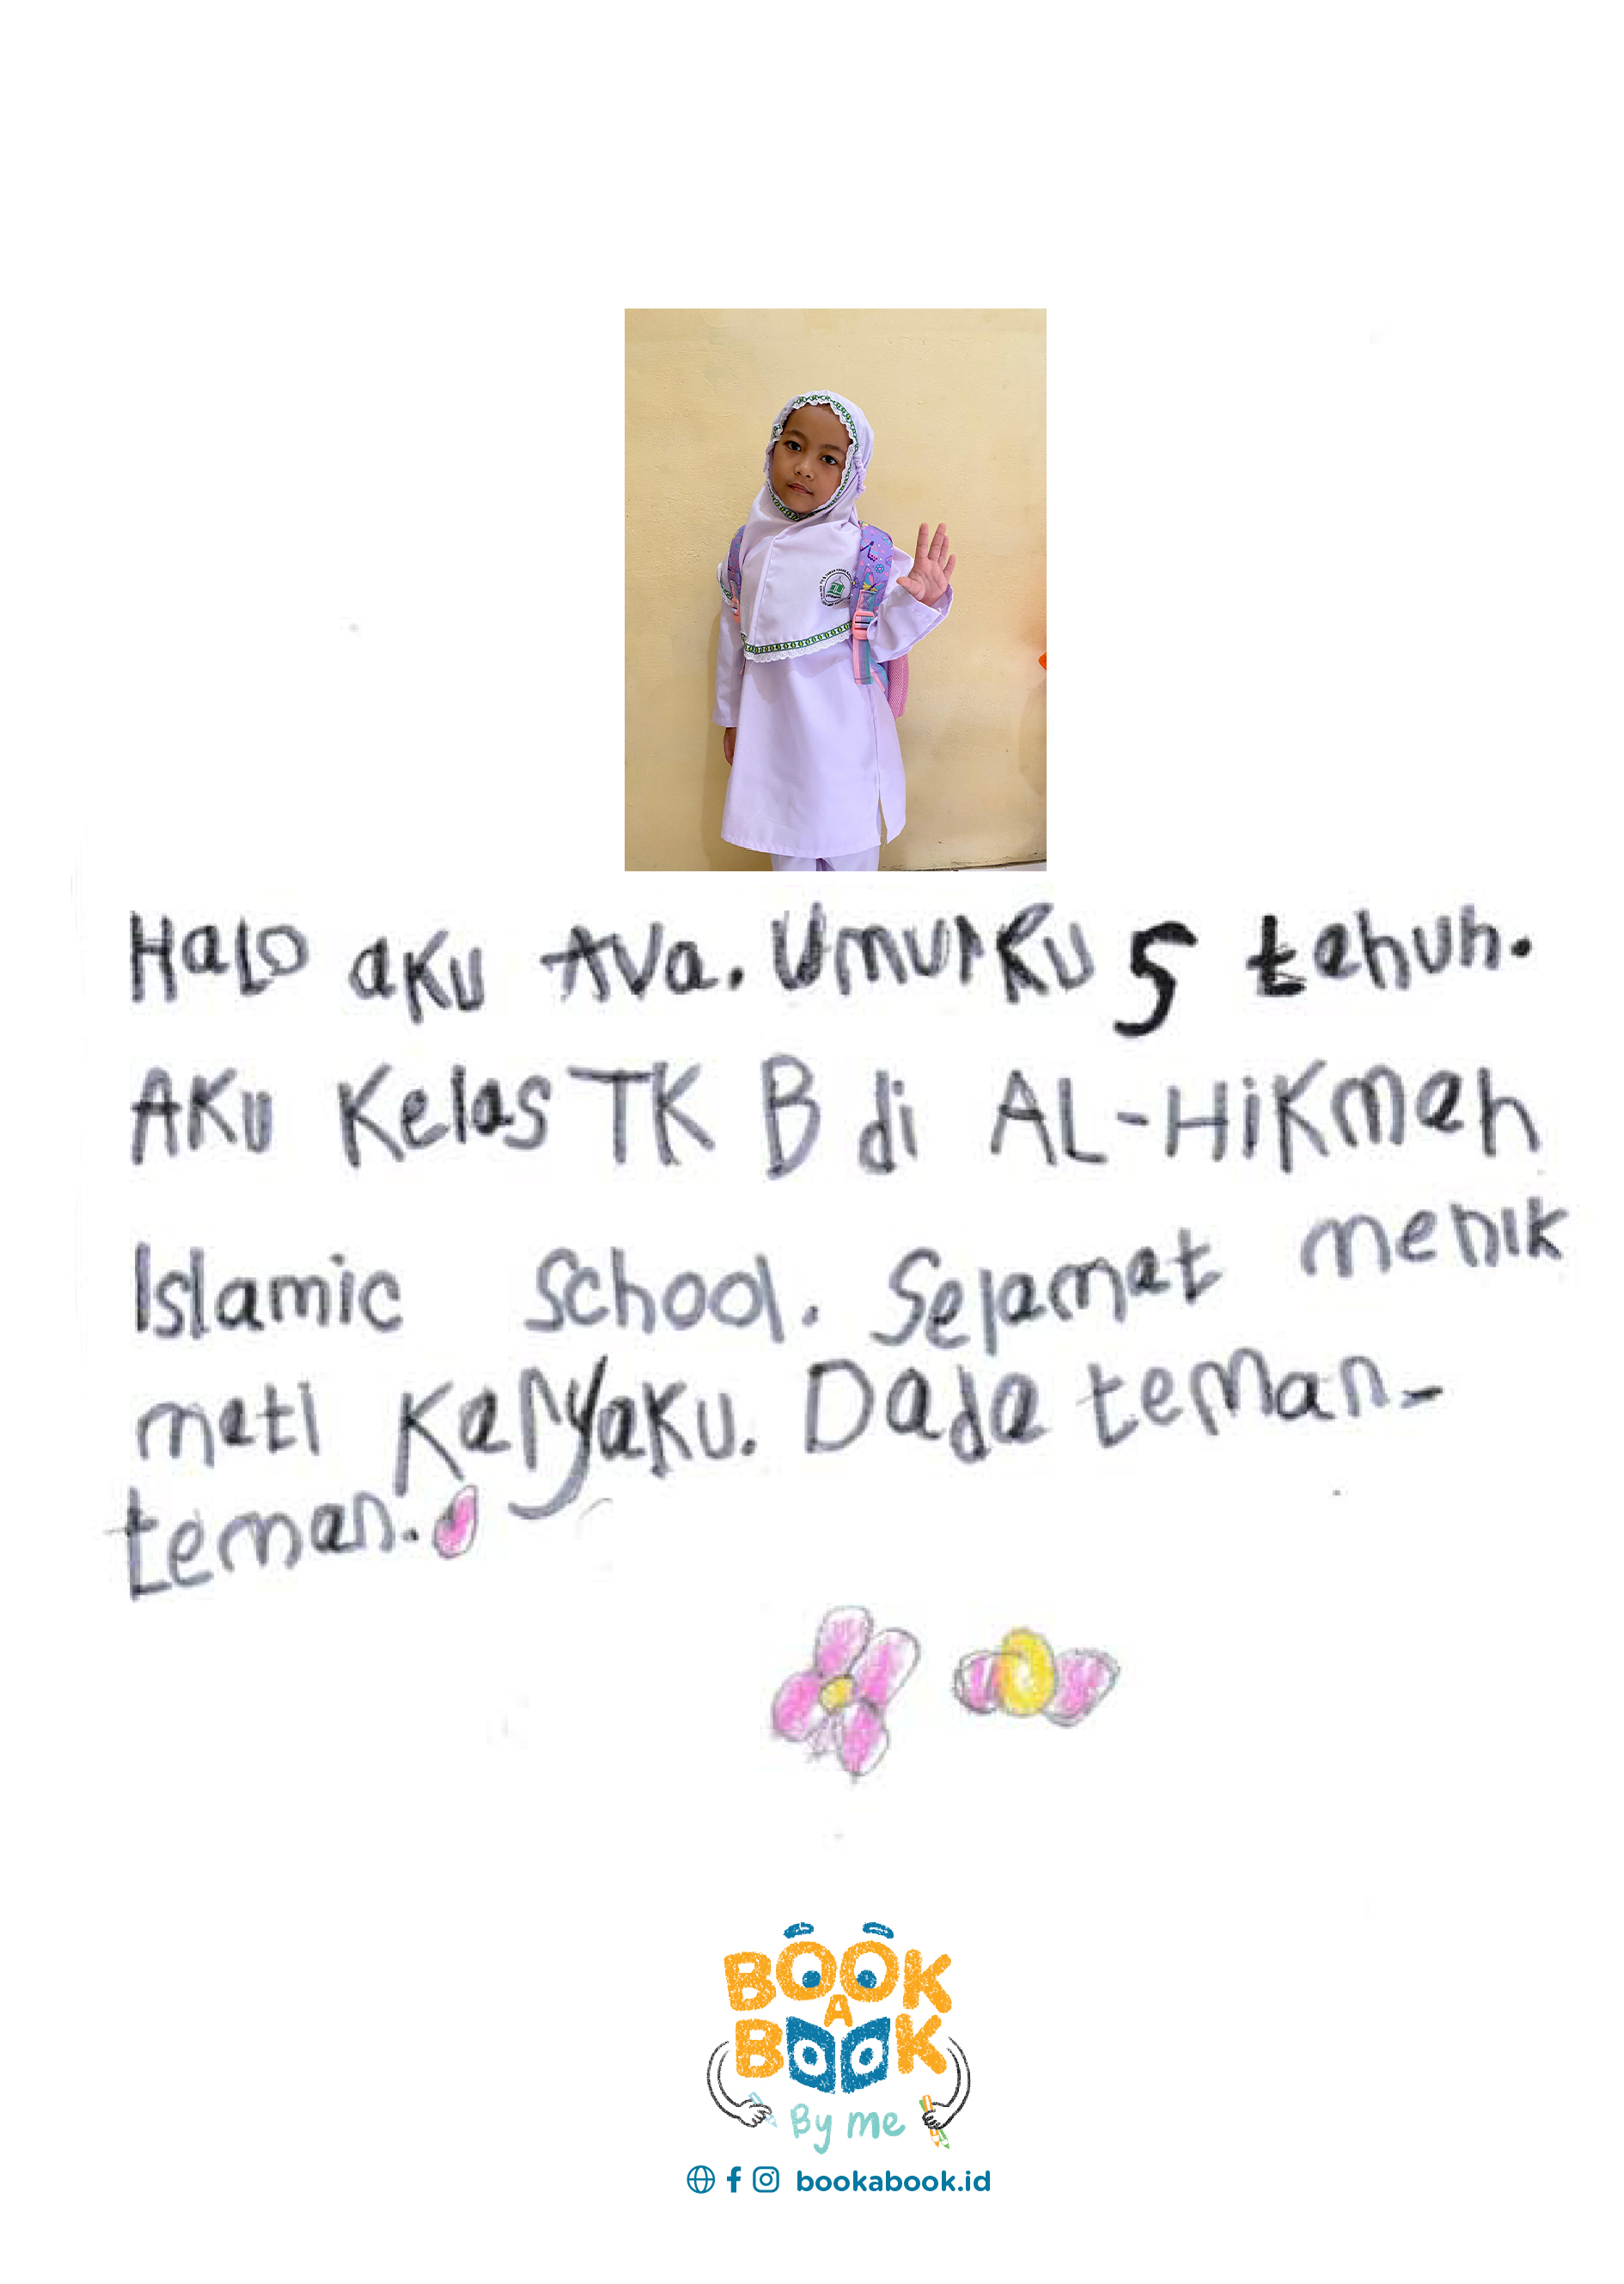 Halo aku Ava. Umurku 5 tahun.
Aku Kelas TK B di AL-Hikmah
Islamic School. Selamat menik
mati Karyaku. Dada teman-
teman.
BOOK
A
BOOK
By me
bookabook.id